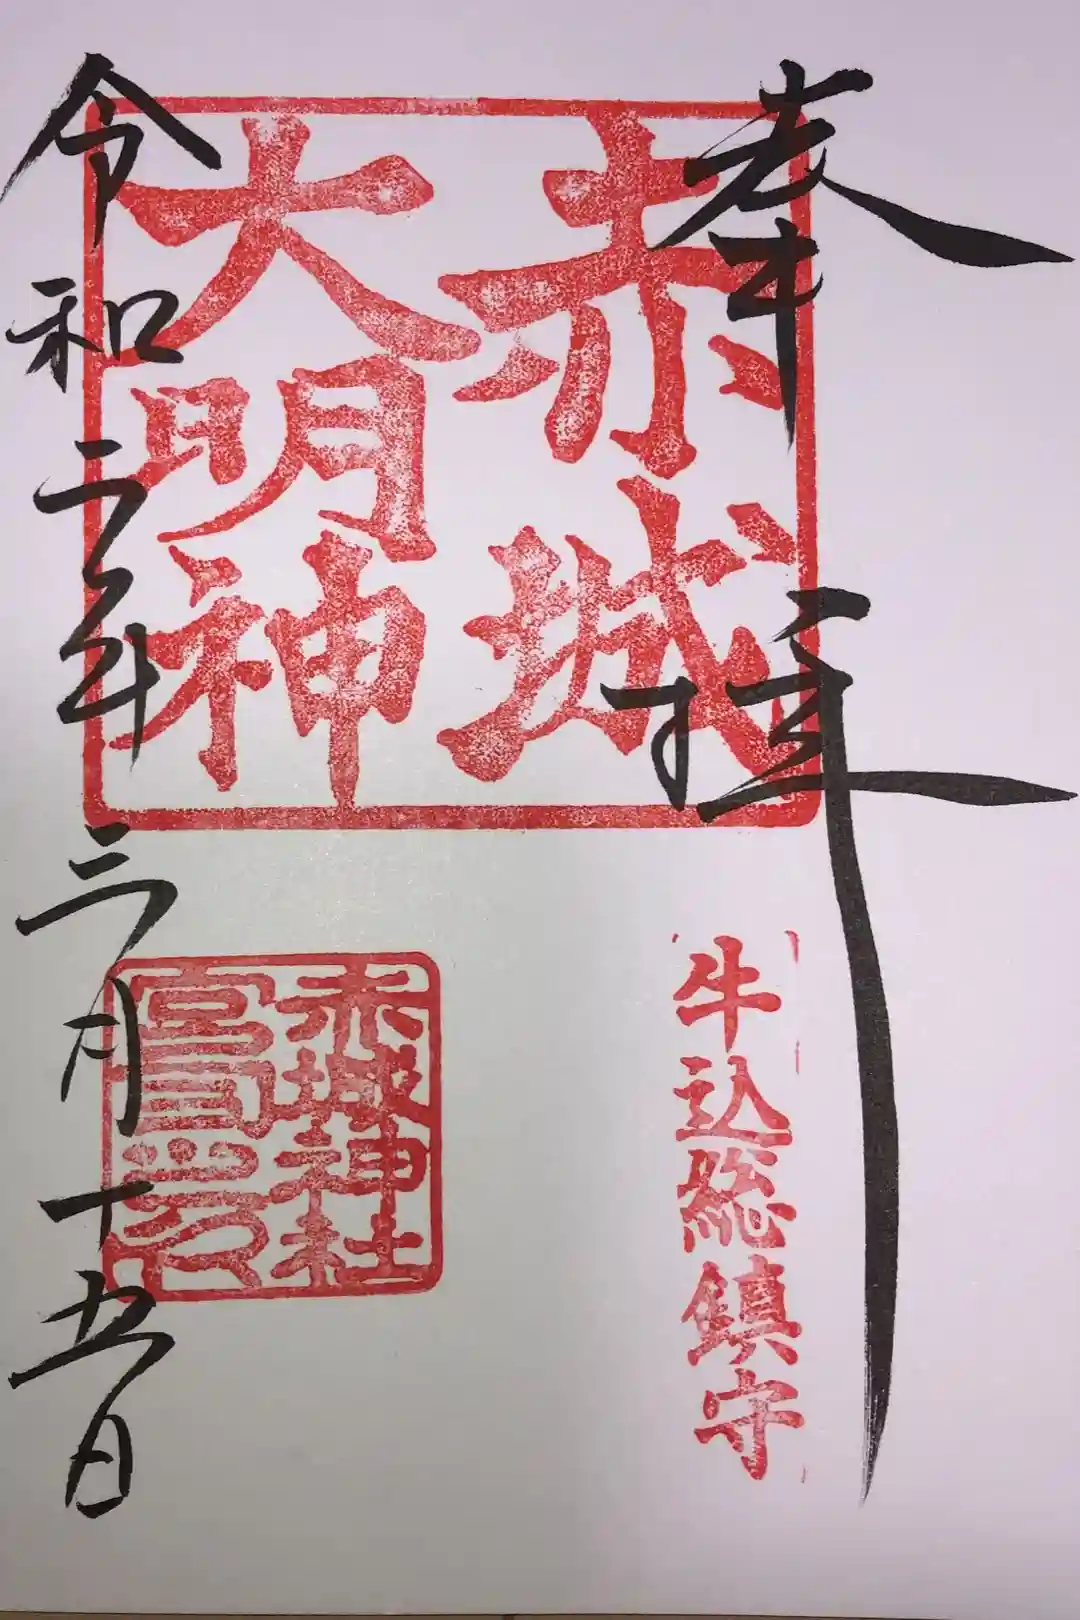 奉拝
牛込総鎮守
赤城
大明神
赤城神社
令和二年三月十五日